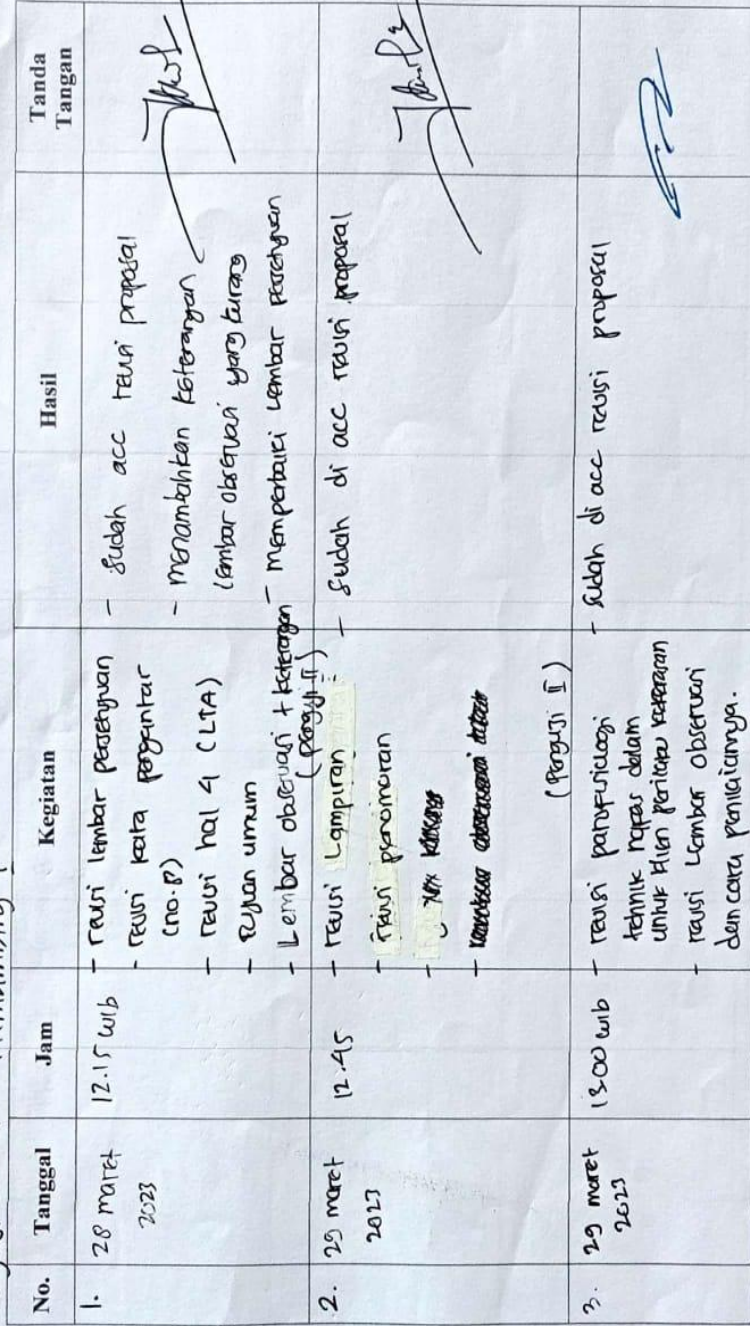 No. Tanggal Jam Kegiatan Hasil Tanda Tangan
1. 28 maret 2023
12.15 wib
- revisi lembar persetujuan
- revisi kata pengantar
(no.8)
- revisi hal 4 (LTA)
- tujuan umum
- Lembar observasi + keterangan
(penguji II)
- Sudah acc revisi proposal
- menambahkan keterangan
lembar observasi yang kurang
- memperbaiki lembar persetujuan
2. 29 maret 2023
12.45
- revisi Lampiran
- revisi
(Penguji II)
- Sudah di acc revisi proposal
3. 29 maret 2023
13.00 wib
- revisi
tehnik napas dalam
untuk klien perilaku kekerasan
- revisi Lembar observasi
dan cara penilaiannya.
- Sudah di acc revisi proposal